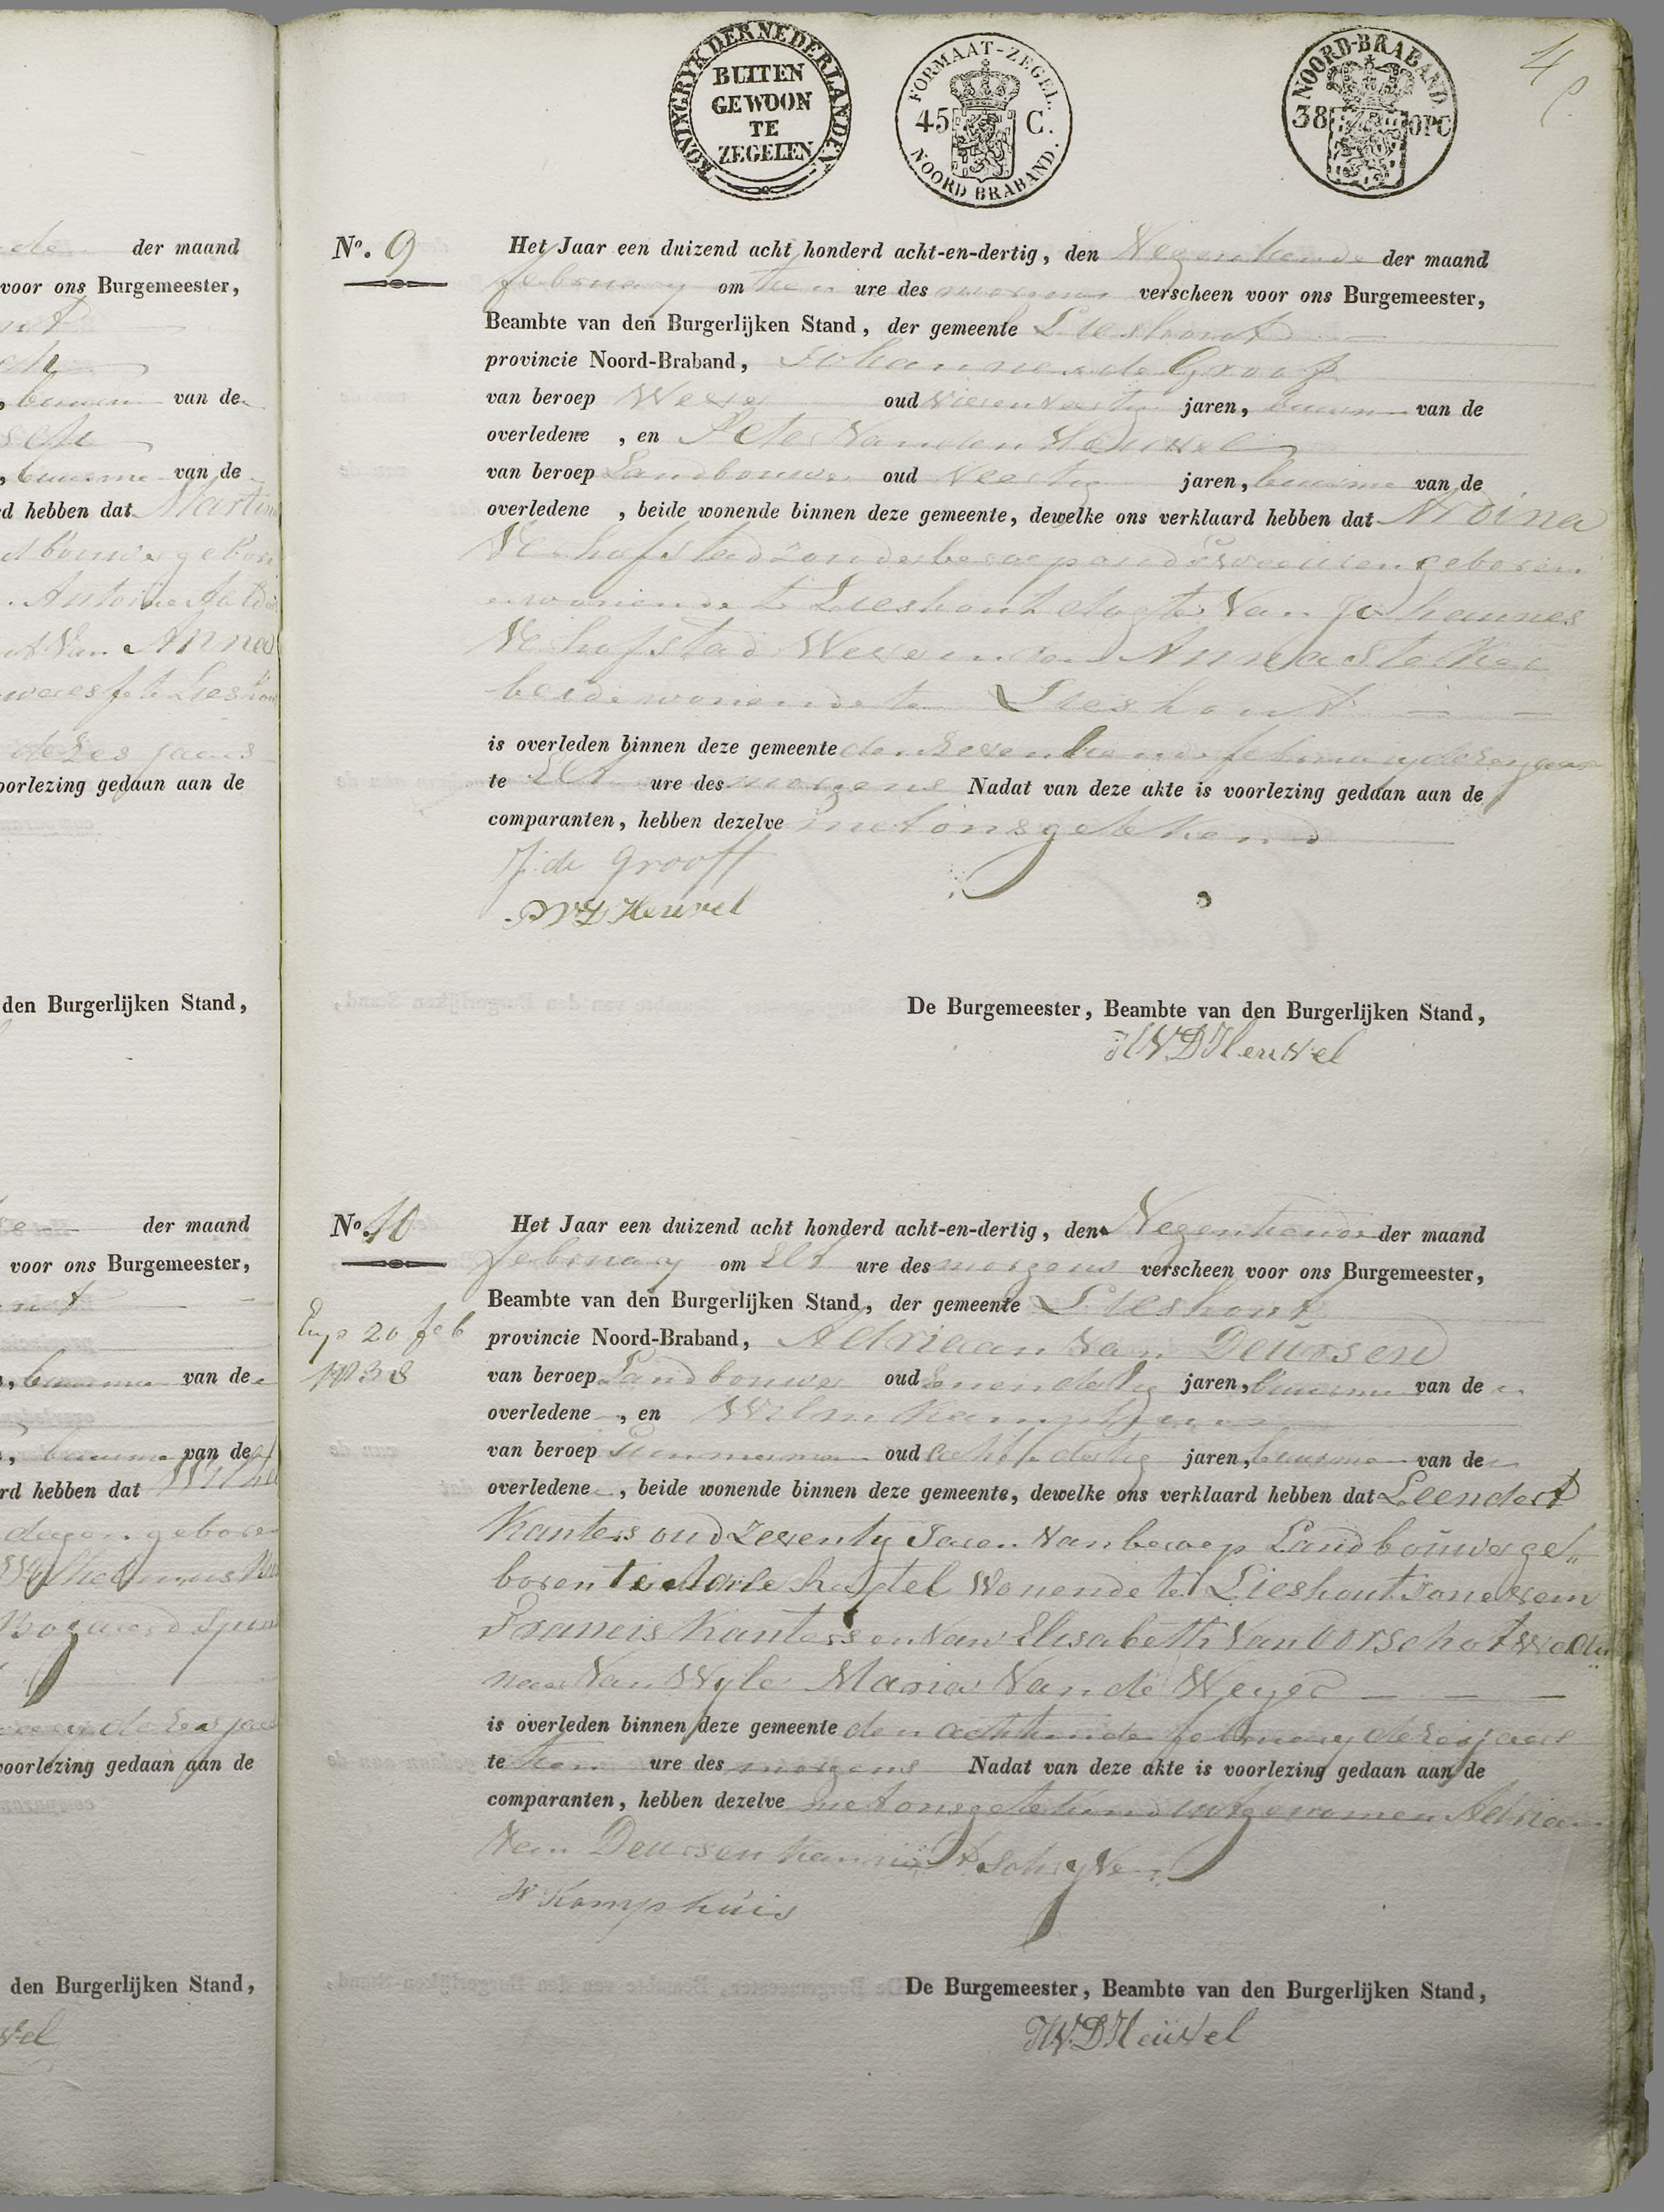 KONINGRYK DER NEDERLANDEN
BUITEN
GEWOON
TE
ZEGELEN
FORMAAT-ZEGEL.
45 C.
NOORD BRABAND.
NOORD-BRABAND.
38 OPC
4
de der maand
voor ons Burgemeester,
van de
van de
d hebben dat Martin
dbouwer gebor
Antoine
van Anna
te Lieshou
dezes jaars
oorlezing gedaan aan de
den Burgerlijken Stand,
der maand
voor ons Burgemeester,
van de
van de
rd hebben dat
dagen gebore
Wilhelmus
Bogaard
dezes jaa
voorlezing gedaan aan de
den Burgerlijken Stand,
No. 9
Het Jaar een duizend acht honderd acht-en-dertig, den Negentiende der maand
february om tien ure des morgens verscheen voor ons Burgemeester,
Beambte van den Burgerlijken Stand, der gemeente Lieshout
provincie Noord-Braband, Johannes de Grooff
van beroep Wever oud jaren, buurman van de
overledene , en Peter Van den Heuvel
van beroep Landbouwer oud Veertig jaren, buurman van de
overledene , beide wonende binnen deze gemeente, dewelke ons verklaard hebben dat Ardina
Verhofstad zonder beroep oud weeken geboren
en wonende te Lieshout dogter Van Johannes
Verhofstad Wever en van Anna
beide wonende te Lieshout
is overleden binnen deze gemeente den zeventiende february dezes jaars
te Elf ure des morgens Nadat van deze akte is voorlezing gedaan aan de
comparanten, hebben dezelve met ons getekend
J. de Grooff
P V D Heuvel
De Burgemeester, Beambte van den Burgerlijken Stand,
HVDHeuvel
No. 10
Het Jaar een duizend acht honderd acht-en-dertig, den Negentiende der maand
february om Elf ure des morgens verscheen voor ons Burgemeester,
Beambte van den Burgerlijken Stand, der gemeente Lieshout
20 feb
1838
provincie Noord-Braband, Adriaan Van Deursen
van beroep Landbouwer oud Eenendertig jaren, buurman van den
overledene , en Willem Kamphuis
van beroep Timmerman oud acht en dertig jaren, buurman van den
overledene , beide wonende binnen deze gemeente, dewelke ons verklaard hebben dat Leendert
Kanters oud zeventig Jaren Van beroep Landbouwer ge-
boren te Aarle rixtel Wonende te Lieshout zone Van
Francis Kanters en Van Elisabeth Van Oorschot wedu
naar Van Wyle Maria Van de Weyer
is overleden binnen deze gemeente den achttiende february dezes jaars
te tien ure des morgens Nadat van deze akte is voorlezing gedaan aan de
comparanten, hebben dezelve met ons getekend uitgenomen Adriaan
Van Deursen kan niet Schryven
W Kamphuis
De Burgemeester, Beambte van den Burgerlijken Stand,
HVDHeuvel